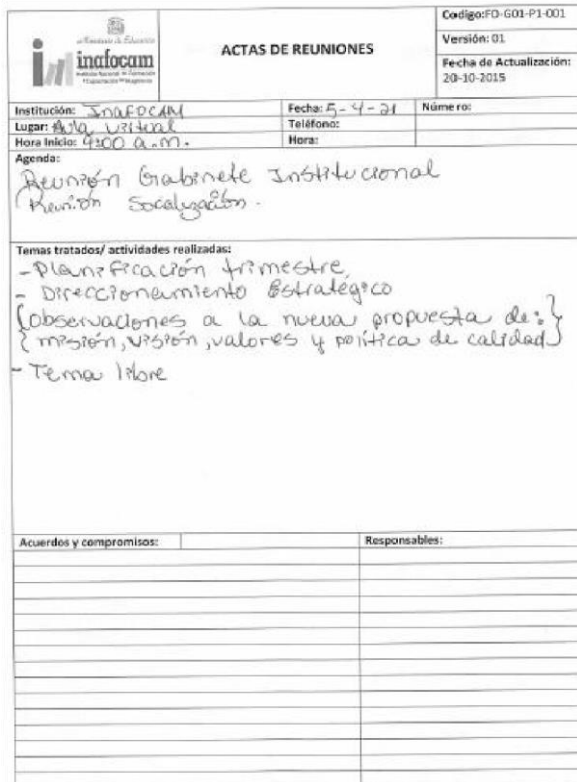 Ministerio de Educación
inafocam
Instituto Nacional de Formación
y Capacitación del Magisterio
ACTAS DE REUNIONES
Codigo:FO-G01-P1-001
Versión: 01
Fecha de Actualización:
20-10-2015
Institución: InaFOCAM
Fecha: 5-4-21
Número:
Lugar: Aula Virtual
Teléfono:
Hora Inicio: 9:00 a.m.
Hora:
Agenda:
Reunión Gabinete Institucional
Reunión Socalización.
Temas tratados/ actividades realizadas:
- Planificación trimestre
- Direccionamiento Estratégico
{Observaciones a la nueva propuesta de:}
{misión, visión, valores y política de calidad}
- Tema libre
Acuerdos y compromisos:
Responsables: